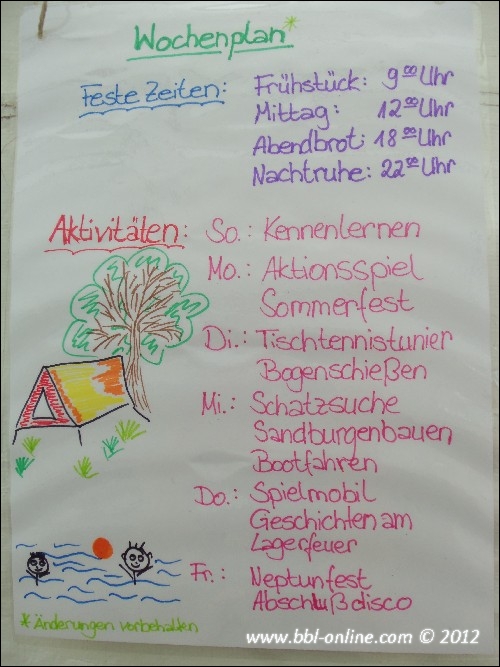 Wochenplan*
Feste Zeiten: Frühstück: 9⁰⁰ Uhr
Mittag: 12⁰⁰ Uhr
Abendbrot: 18⁰⁰ Uhr
Nachtruhe: 22⁰⁰ Uhr
Aktivitäten: So.: Kennenlernen
Mo.: Aktionsspiel
Sommerfest
Di.: Tischtennistunier
Bogenschießen
Mi.: Schatzsuche
Sandburgenbauen
Bootfahren
Do.: Spielmobil
Geschichten am
Lagerfeuer
Fr.: Neptunfest
Abschlußdisco
*Änderungen vorbehalten
www.bbl-online.com © 2012